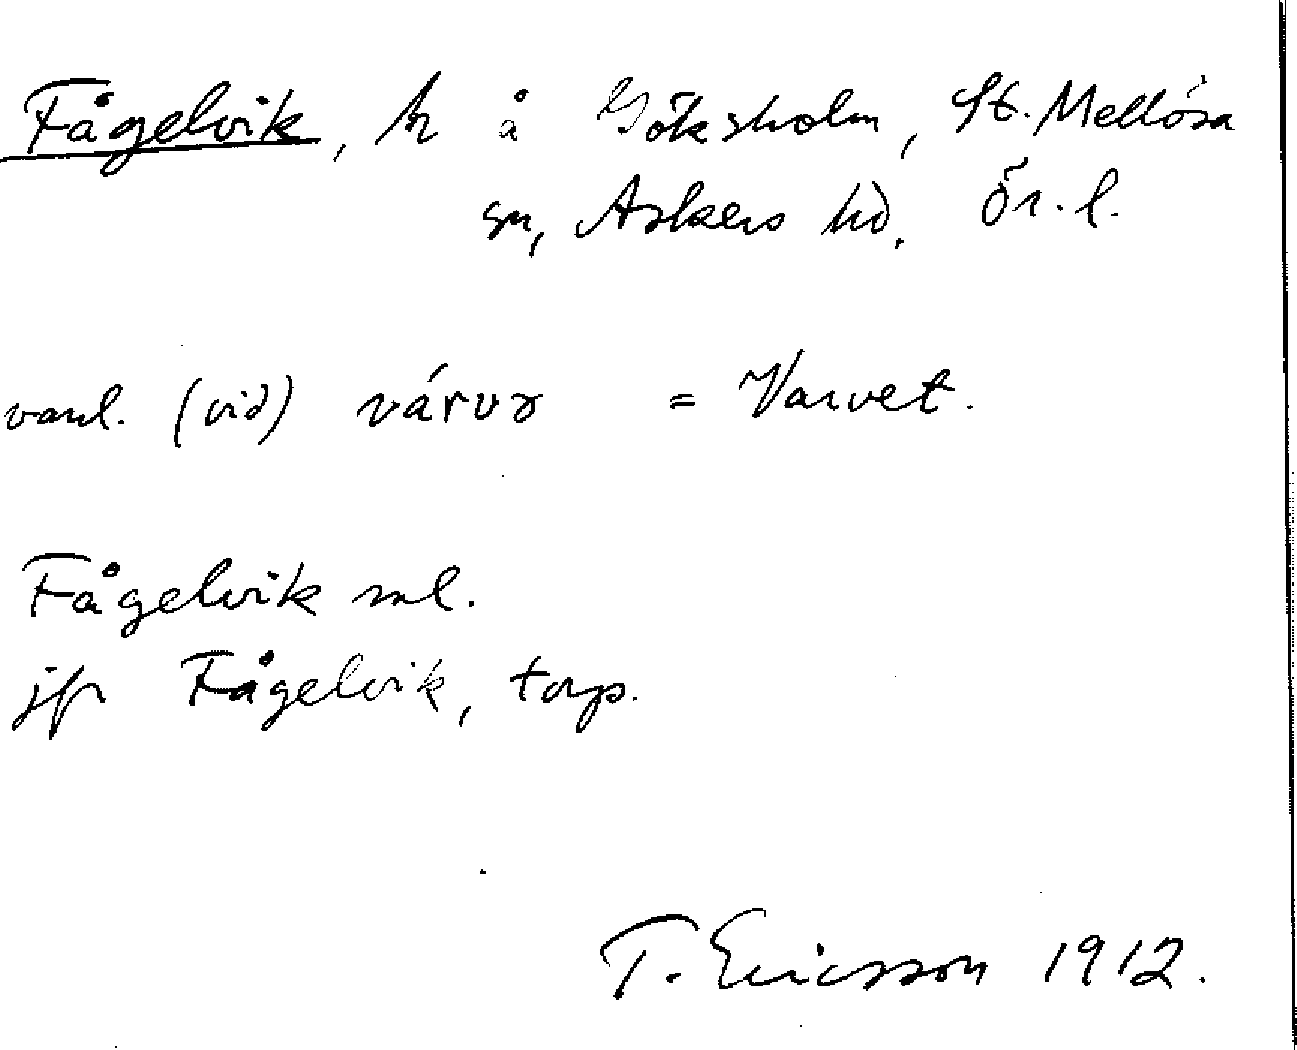 Fågelvik, h å Göksholm, St. Mellösa
sn, Askers hd, Ör. l.
vanl. (vid) várvr = Varvet.
Fågelvik ml.
jfr Fågelvik, torp.
T. Ericsson 1912.